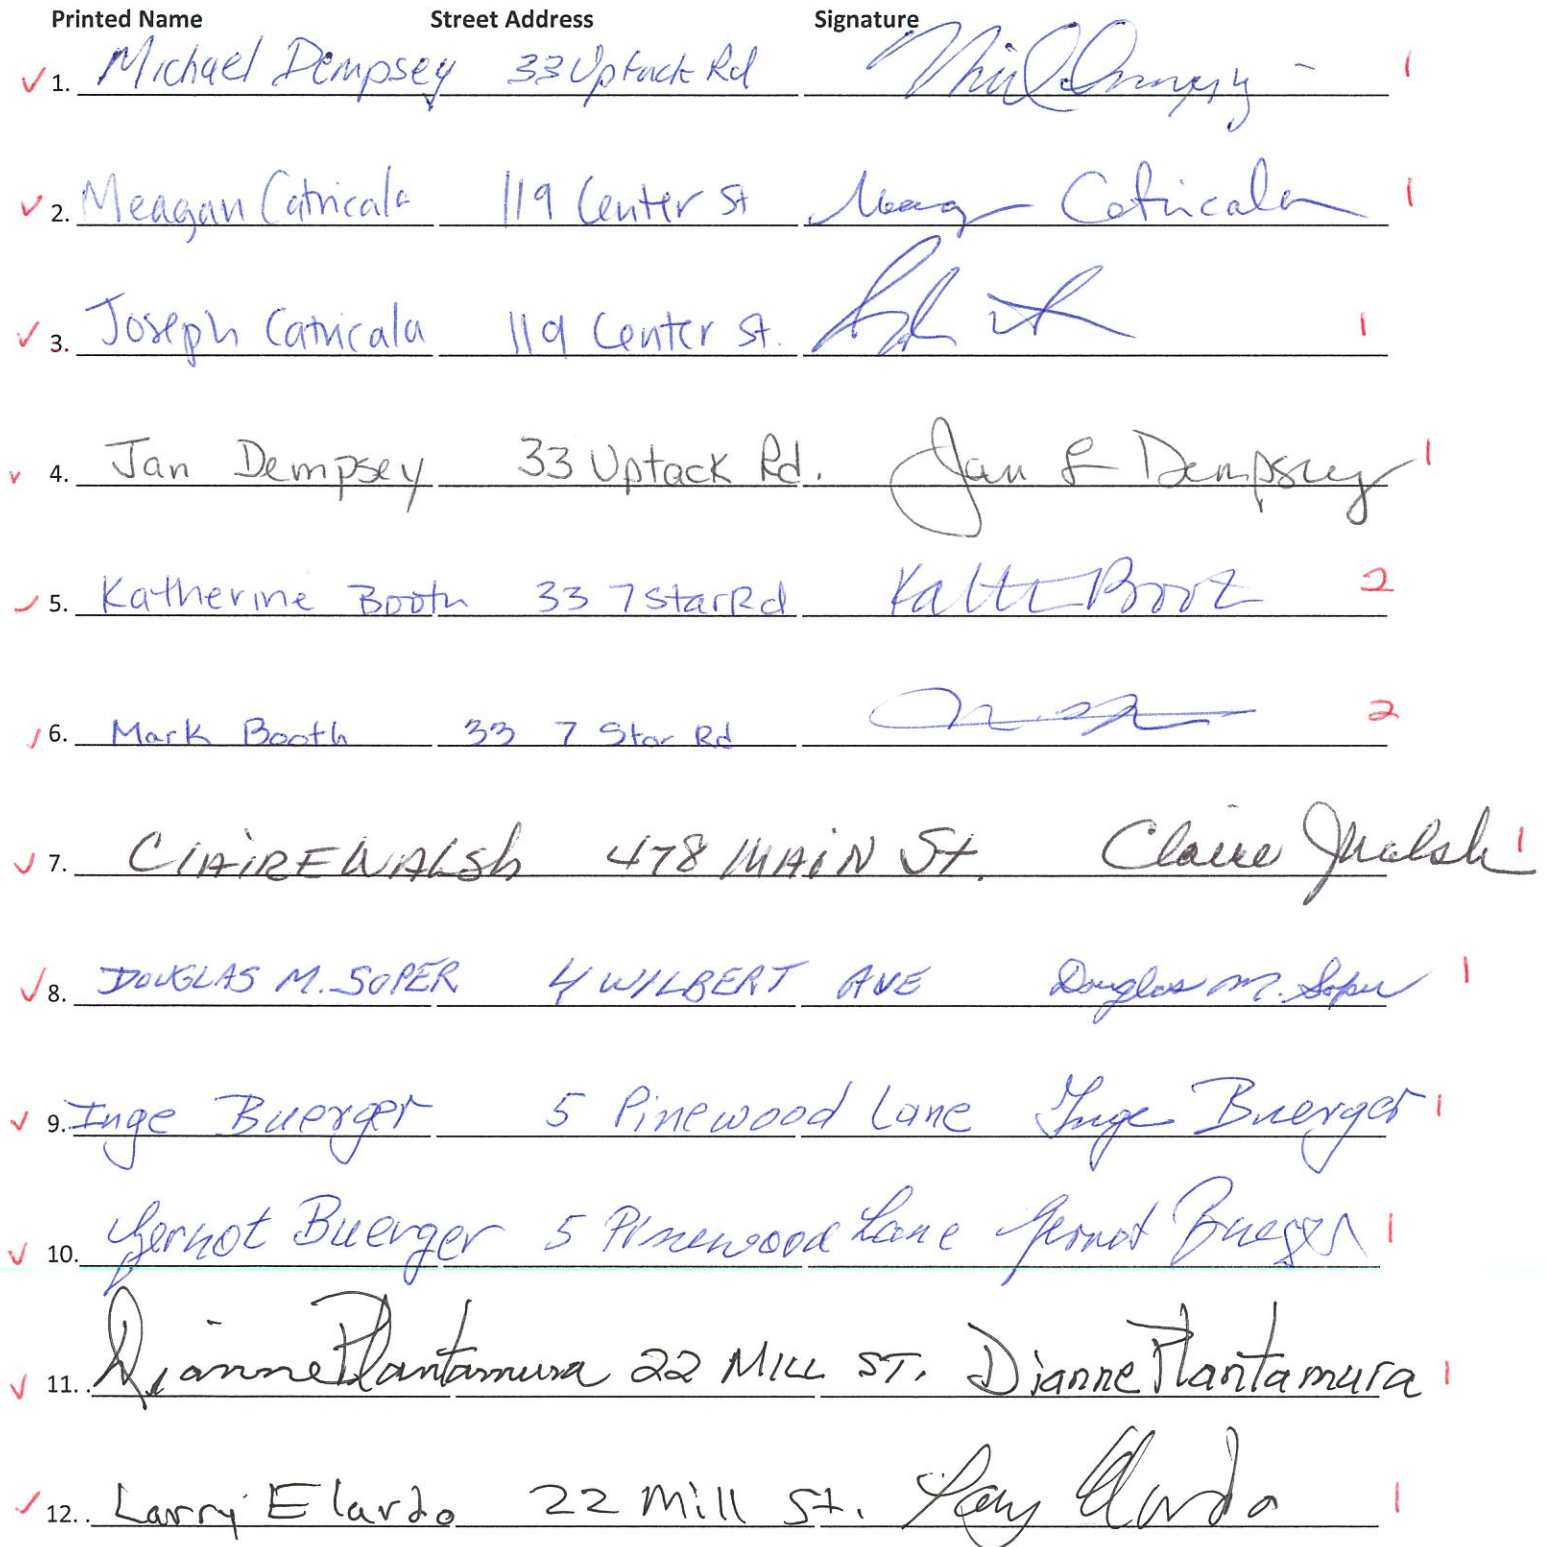 Printed Name Street Address Signature
✓ 1. Michael Dempsey 33 Uptack Rd 1
✓ 2. Meagan Catricala 119 Center St Meag Catricala 1
✓ 3. Joseph Catricala 119 Center St. 1
✓ 4. Jan Dempsey 33 Uptack Rd. Jan L Dempsey 1
✓ 5. Katherine Booth 33 7 Star Rd Booth 2
✓ 6. Mark Booth 33 7 Star Rd 2
✓ 7. CLAIRE WALSh 478 MAiN St. Claire J Walsh 1
✓ 8. DOUGLAS M. SOPER 4 WILBERT AVE Douglas M. Soper 1
✓ 9. Inge Buerger 5 Pinewood Lane Inge Buerger 1
✓ 10. Gernot Buerger 5 Pinewood Lane Gernot Buerger 1
✓ 11. . Dianne Plantamura 22 MILL ST. Dianne Plantamura 1
✓ 12. . Larry Elardo 22 Mill St. Larry Elardo 1